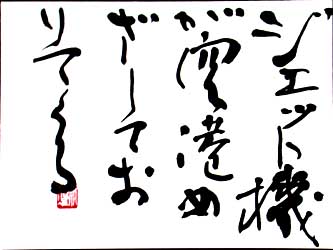 ジェット機
が空港め
ざしてお
りてくる